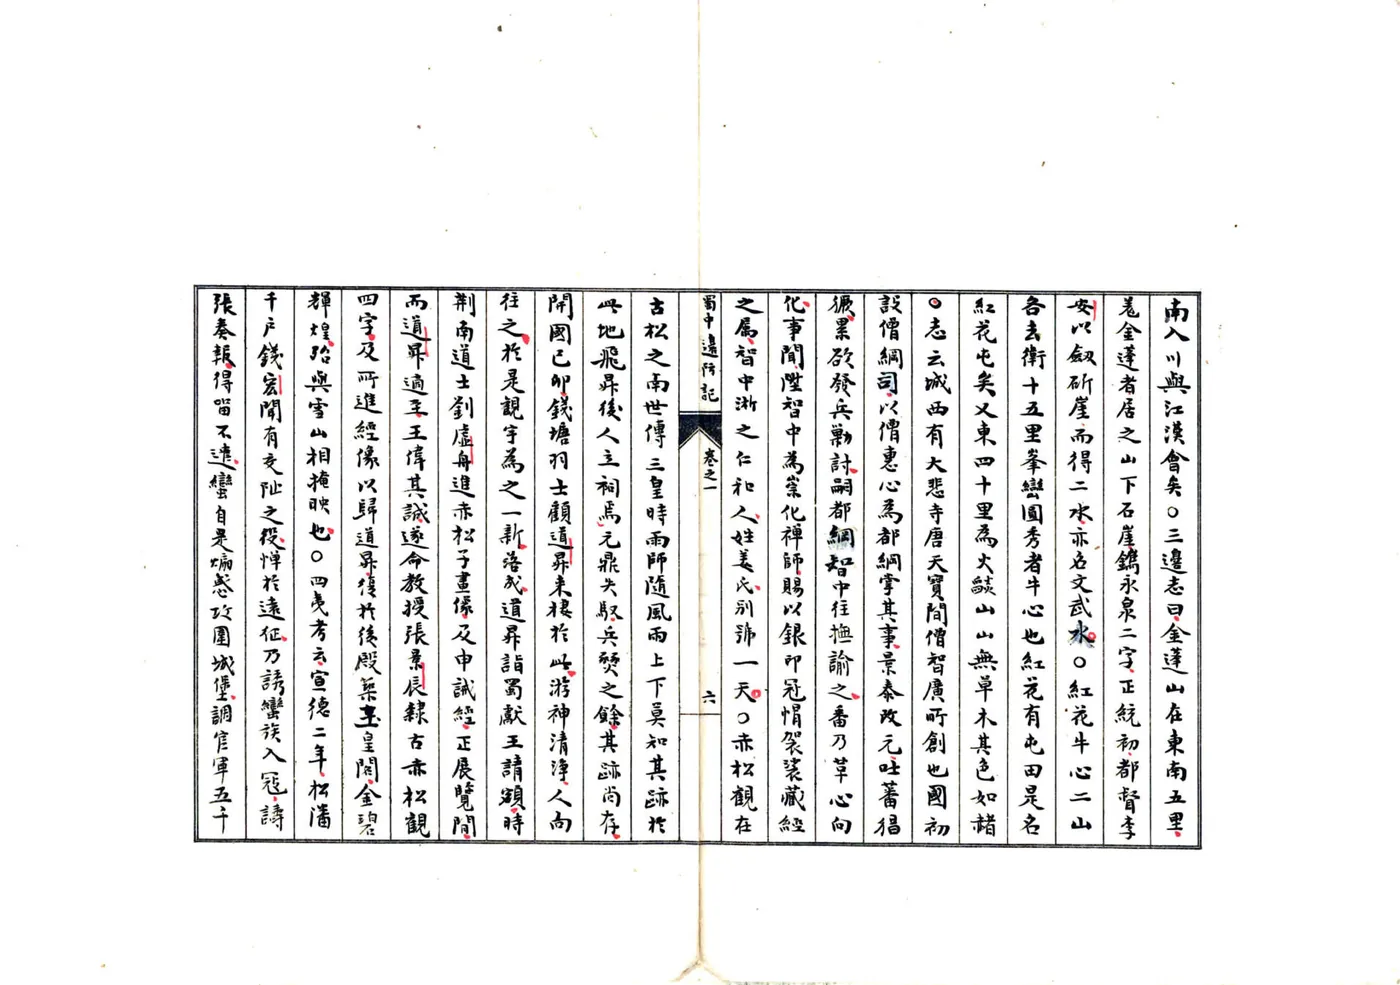 南入川與江漢會矣○三邊志曰金蓬山在東南五里
嵬金蓬者居之山下石崖鐫永泉二字正統初都督李
安以劔斫崖而得二水亦名文武水○紅花牛心二山
各去衛十五里峯巒圓秀者牛心也紅花有屯田是名
紅花屯矣又東四十里為火燄山山無草木其色如赭
○志云城西有大悲寺唐天寶間僧智廣所創也國初
設僧綱司以僧惠心為都綱掌其事景泰改元吐蕃猖
獗累欲發兵勦討嗣都綱智中往撫諭之番乃革心向
化事聞陞智中為崇化禪師賜以銀印冠帽袈裟藏經
之屬智中浙之仁和人姓姜氏別號一天○赤松觀在
蜀中邊防記 卷之一 六
古松之南世傳三皇時雨師隨風雨上下莫知其跡於
此地飛昇後人立祠焉元鼎失馭兵燹之餘其跡尚存
開國己卯錢塘羽士顧道昇来棲於此游神清淨人向
往之於是觀宇為之一新落成道昇詣蜀獻王請額時
荆南道士劉虛舟進赤松子畫像及中誡經正展覽間
而道昇適至王偉其誠遂命教授張景辰隸古赤松觀
四字及所進經像以歸道昇復於後殿築玉皇閣金碧
輝煌殆與雪山相掩映也○四夷考云宣德二年松潘
千戶錢宏聞有交阯之役憚於遠征乃誘蠻族入冦譸
張奏報得畱不遣蠻自是煽惑攻圍城堡調官軍五千